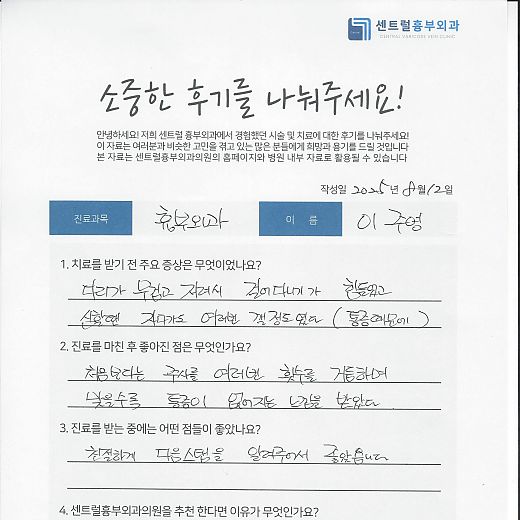 센트럴흉부외과
CENTRAL VARICOSE VEIN CLINIC
소중한 후기를 나눠주세요!
안녕하세요! 저희 센트럴 흉부외과에서 경험했던 시술 및 치료에 대한 후기를 나눠주세요!
이 자료는 여러분과 비슷한 고민을 겪고 있는 많은 분들에게 희망과 용기를 드릴 것입니다
본 자료는 센트럴흉부외과의원의 홈페이지와 병원 내부 자료로 활용될 수 있습니다
작성일 2025년 8월 12일
진료과목 흉부외과 이 름 이주영
1. 치료를 받기 전 주요 증상은 무엇이었나요?
다리가 무겁고 저려서 걸어다니기가 힘들었고
심할땐 자다가도 여러번 깰정도였다 (통증때문에)
2. 진료를 마친 후 좋아진 점은 무엇인가요?
처음보다는 주사를 여러번 횟수를 거듭하며
맞을수록 통증이 없어지는 느낌을 받았다
3. 진료를 받는 중에는 어떤 점들이 좋았나요?
친절하게 다음스텝을 알려주어서 좋았습니다
4. 센트럴흉부외과의원을 추천 한다면 이유가 무엇인가요?